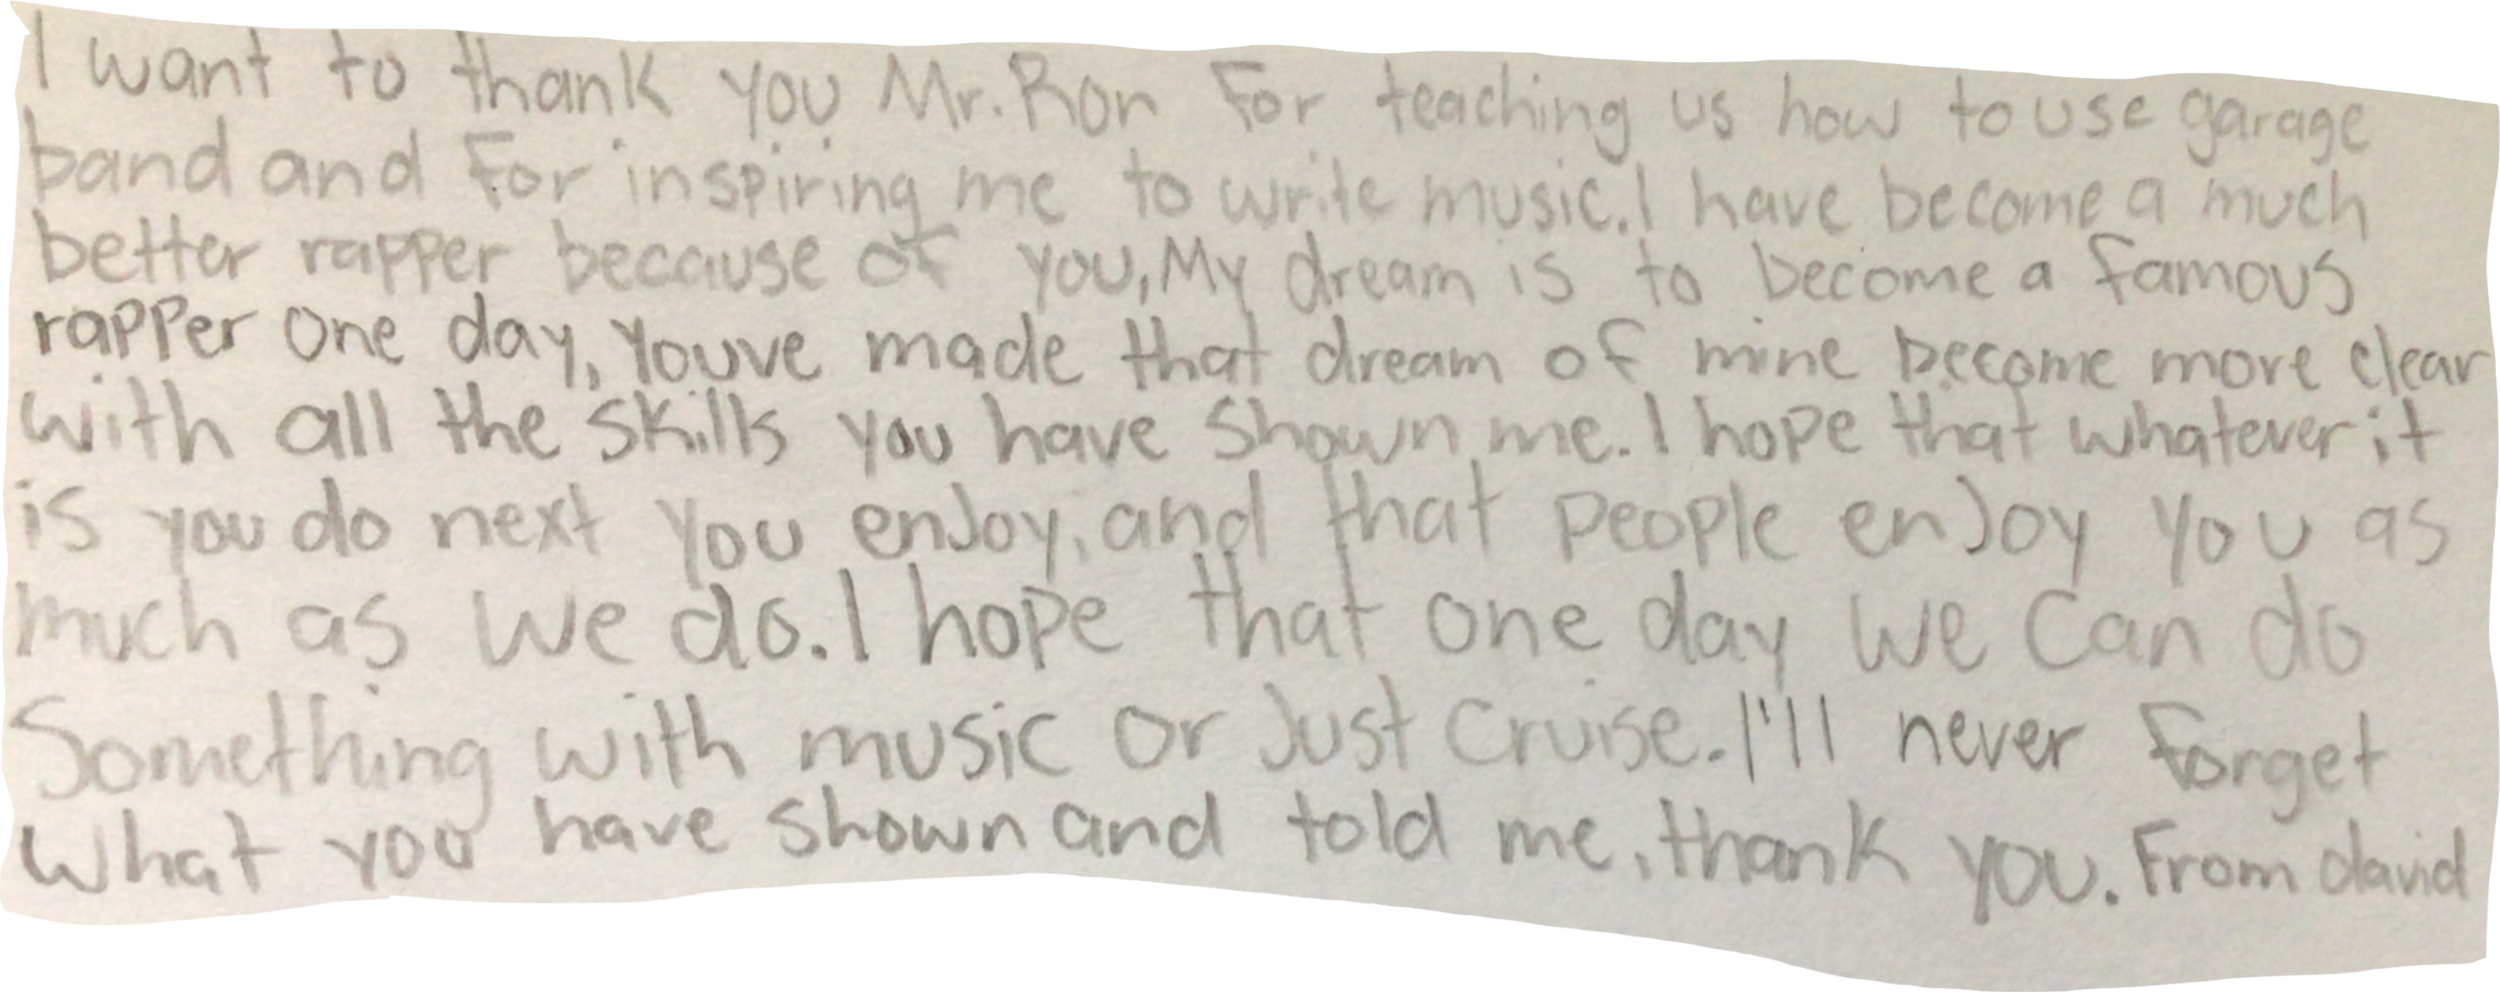 I want to thank you Mr. Ron For teaching us how to use garage
band and For inspiring me to write music. I have become a much
better rapper because of you, My dream is to become a famous
rapper one day, Youve made that dream of mine become more clear
with all the skills you have shown me. I hope that whatever it
is you do next you enjoy, and that people enjoy you as
much as we do. I hope that one day we can do
Something with music or Just cruise. I'll never Forget
what you have shown and told me, thank you. From david